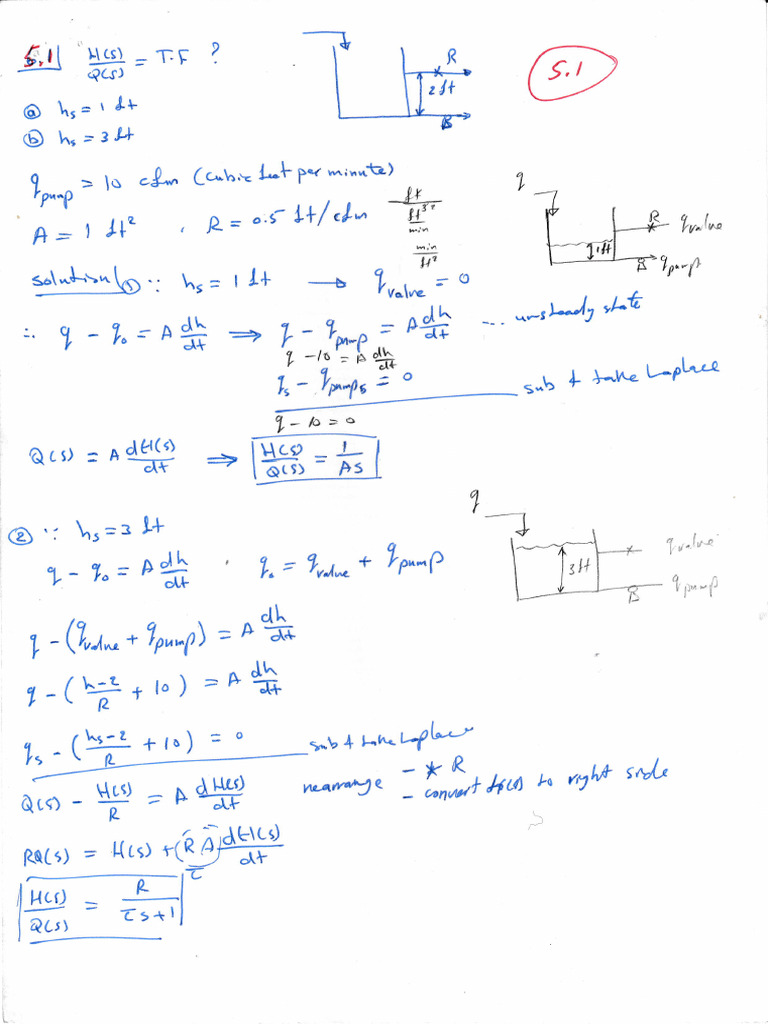 5.1 H(s)/Q(s) = T.F ?
R
2 ft
B
5.1
ⓐ hs = 1 ft
ⓑ hs = 3 ft
q pump = 10 cfm (cubic feet per minute)
A = 1 ft² , R = 0.5 ft/cfm
ft / ft³/min
min/ft²
q
R
q valve
1ft
B q pump
solution ① ∵ hs = 1 ft → q valve = 0
∴ q - q₀ = A dh/dt ⇒ q - q pump = A dh/dt ... unsteady state
q - 10 = A dh/dt
qs - q pumps = 0
sub & take Laplace
q - 10 = 0
Q(s) = A dH(s)/dt ⇒ H(s)/Q(s) = 1/AS
② ∵ hs = 3 ft
q
q valve
3 ft
B q pump
q - q₀ = A dh/dt , q₀ = q valve + q pump
q - (q valve + q pump) = A dh/dt
q - (h-2/R + 10) = A dh/dt
qs - (hs-2/R + 10) = 0 sub & take Laplace
Q(s) - H(s)/R = A dH(s)/dt rearrange - * R
- convert to right side
RQ(s) = H(s) + (R A) dH(s)/dt
τ
H(s)/Q(s) = R/τs+1